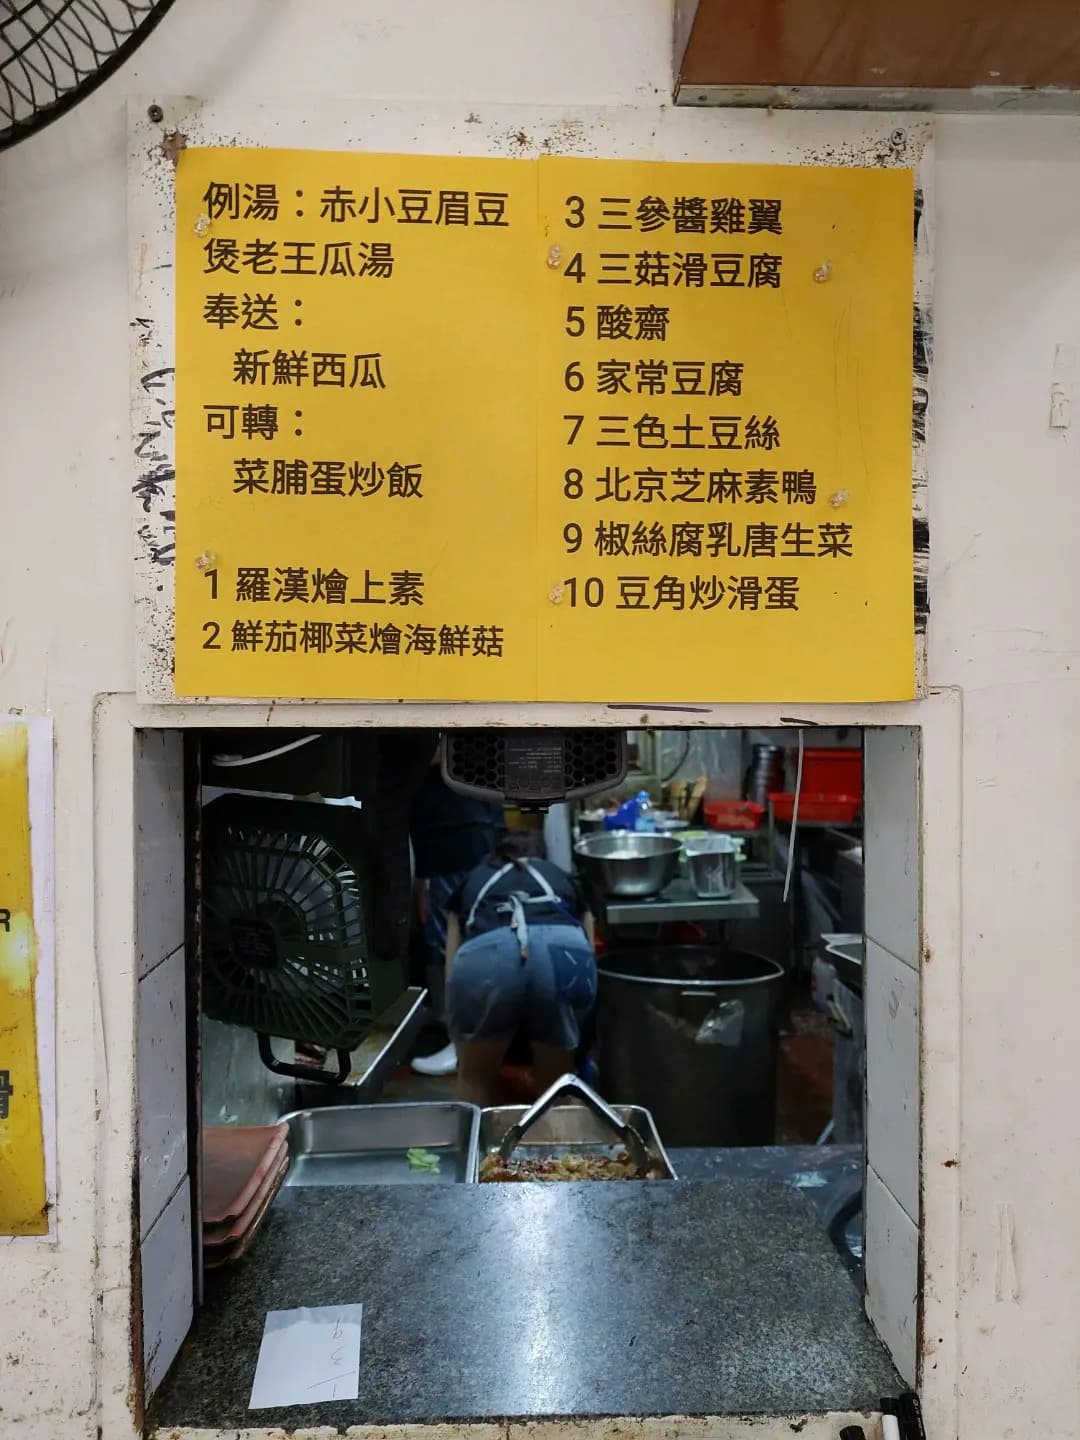 例湯：赤小豆眉豆
煲老王瓜湯
奉送：
新鮮西瓜
可轉：
菜脯蛋炒飯
1 羅漢燴上素
2 鮮茄椰菜燴海鮮菇
3 三參醬雞翼
4 三菇滑豆腐
5 酸齋
6 家常豆腐
7 三色土豆絲
8 北京芝麻素鴨
9 椒絲腐乳唐生菜
10 豆角炒滑蛋
R